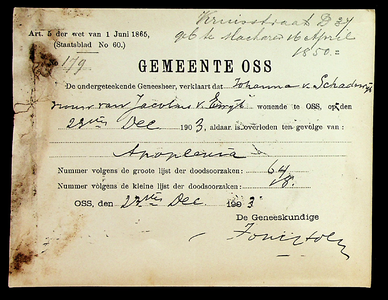 Kruisstraat D 34
Art. 5 der wet van 1 Juni 1865,
(Staatsblad No 60.)
geb te Macharen 16 April
1850.=
179
GEMEENTE OSS
De ondergeteekende Geneesheer, verklaart dat Johanna v. Schadewijk
vrouw van Jacobus v. wonende te OSS, op den
22sten Dec. 1903, aldaar is overleden ten gevolge van:
Apoplexia
Nummer volgens de groote lijst der doodsoorzaken: 64
Nummer volgens de kleine lijst der doodsoorzaken: 18.
OSS, den 22sten Dec. 1903.
De Geneeskundige